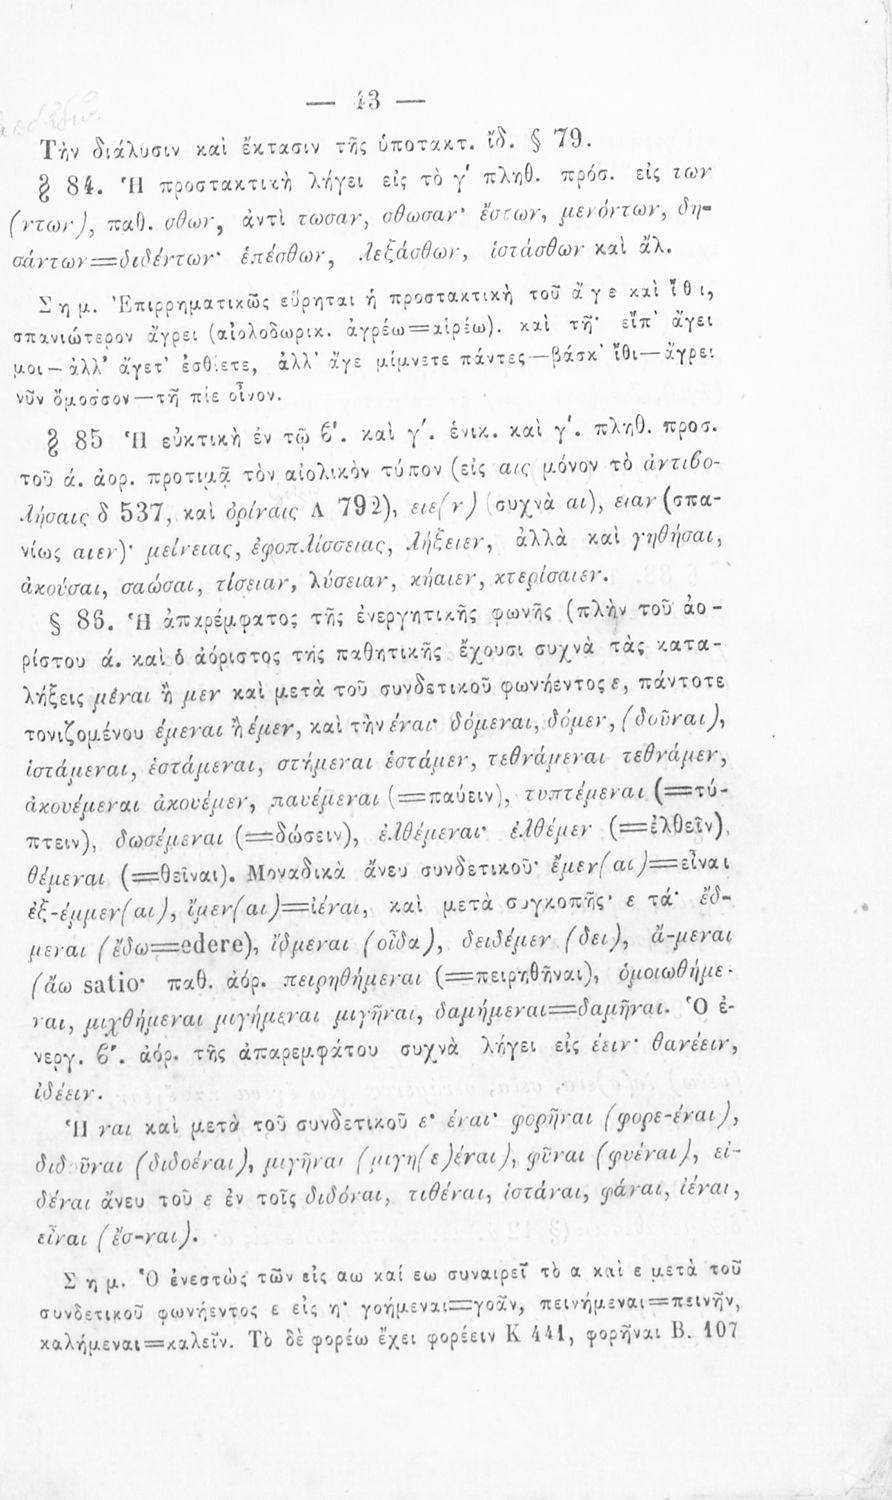 — 43 —
Τὴν διάλυσιν καὶ ἔκτασιν τῆς ὑποτακτ. ἴδ. § 79.
§ 84. Ἡ προστακτικὴ λήγει εἰς τὸ γ' πληθ. πρόσ. εἰς των
(ντων), παθ. σθων, ἀντὶ τωσαν, σθωσαν· ἔστων, μενόντων, δη-
σάντων=διδέντων· ἑπέσθων, λεξάσθων, ἱστάσθων καὶ ἄλ.
Σημ. Ἐπιρρηματικῶς εὕρηται ἡ προστακτικὴ τοῦ ἄγε καὶ ἴθι,
σπανιώτερον ἄγρει (αἰολοδωρικ. ἀγρέω=αἱρέω). καὶ τῆ· εἴπ' ἄγει
μοι—ἀλλ' ἄγετ' ἐσθίετε, ἀλλ' ἄγε μίμνετε πάντες—βάσκ' ἴθι—ἄγρει
νῦν ὄμοσσον—τῆ πίε οἶνον.
§ 85 Ἡ εὐκτικὴ ἐν τῷ β'. καὶ γ'. ἑνικ. καὶ γ'. πληθ. προσ.
τοῦ ά. ἀορ. προτιμᾷ τὸν αἰολικὸν τύπον (εἰς αις μόνον τὸ ἀντιβο-
λήσαις δ 537, καὶ ὀρίναις Λ 792), ειε(ν) (συχνὰ αι), ειαν (σπα-
νίως αιεν)· μείνειας, ἐφοπλίσσειας, λήξειεν, ἀλλὰ καὶ γηθήσαι,
ἀκούσαι, σαώσαι, τίσειαν, λύσειαν, κήαιεν, κτερίσαιεν.
§ 86. Ἡ ἀπαρέμφατος τῆς ἐνεργητικῆς φωνῆς (πλὴν τοῦ ἀο-
ρίστου ά. καὶ ὁ ἀόριστος τῆς παθητικῆς ἔχουσι συχνὰ τὰς κατα-
λήξεις μέναι ἢ μεν καὶ μετὰ τοῦ συνδετικοῦ φωνήεντος ε, πάντοτε
τονιζομένου έμεναι ἢ έμεν, καὶ τὴν έναι· δόμεναι, δόμεν, (δοῦναι),
ἱστάμεναι, ἑστάμεναι, στήμεναι ἑστάμεν, τεθνάμεναι τεθνάμεν,
ἀκουέμεναι ἀκουέμεν, παυέμεναι (=παύειν), τυπτέμεναι (=τύ-
πτειν), δωσέμεναι (=δώσειν), ἐλθέμεναι· ἐλθέμεν (=ἐλθεῖν),
θέμεναι (=θεῖναι). Μοναδικὰ ἄνευ συνδετικοῦ· ἔμεν(αι)=εἶναι
ἐξ-έμμεν(αι), ἴμεν(αι)=ἰέναι, καὶ μετὰ συγκοπῆς· ε τά· ἔδ-
μεναι (ἔδω=edere), ἴδμεναι (οἶδα), δειδέμεν (δει), ἄ-μεναι
(ἄω satio· παθ. ἀόρ. πειρηθήμεναι (=πειρηθῆναι), ὁμοιωθήμε-
ναι, μιχθήμεναι μιγήμεναι μιγῆναι, δαμήμεναι=δαμῆναι. Ὁ ἐ-
νεργ. β'. ἀόρ. τῆς ἀπαρεμφάτου συχνὰ λήγει εἰς έειν· θανέειν,
ἰδέειν.
Ἡ ναι καὶ μετὰ τοῦ συνδετικοῦ ε· έναι· φορῆναι (φορε-έναι),
διδοῦναι (διδοέναι), μιγῆναι (μιγη(ε)έναι), φῦναι (φυέναι), εἰ-
δέναι ἄνευ τοῦ ε ἐν τοῖς διδόναι, τιθέναι, ἱστάναι, φάναι, ἰέναι,
εἶναι (ἔσ-ναι).
Σημ. Ὁ ἐνεστὼς τῶν εἰς αω καί εω συναιρεῖ τὸ α καὶ ε μετὰ τοῦ
συνδετικοῦ φωνήεντος ε εἰς η· γοήμεναι=γοᾶν, πεινήμεναι=πεινῆν,
καλήμεναι=καλεῖν. Τὸ δὲ φορέω ἔχει φορέειν Κ 441, φορῆναι Β. 107